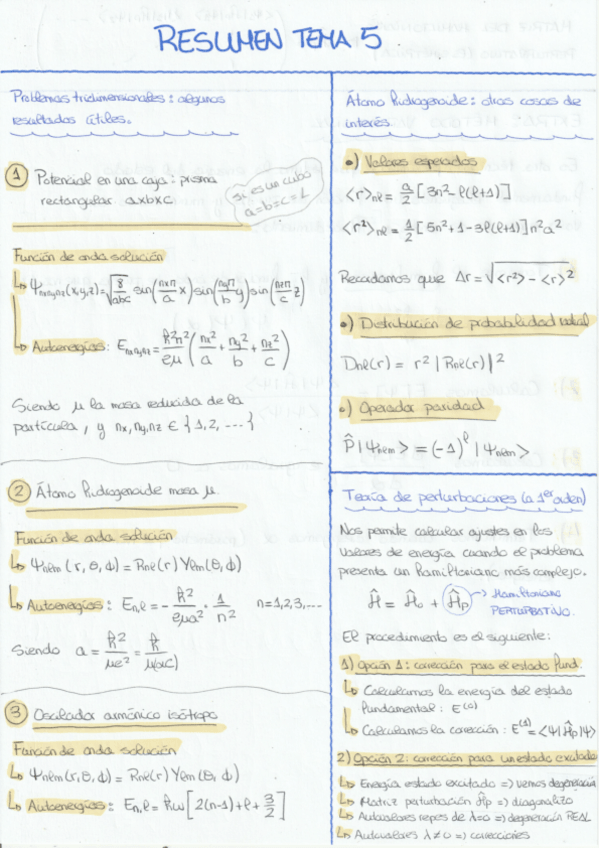 RESUMEN TEMA 5
Problemas tridimensionales: algunos
resultados útiles.
① Potencial en una caja: prisma
rectangular axbxc
Si es un cubo
a=b=c=L
Función de onda solución
↳ Ψnx,ny,nz(x,y,z)=√(8/abc) sin(nxπ/a x) sin(nyπ/b y) sin(nzπ/c z)
↳ Autoenergías: Enx,ny,nz = ℏ²π²/2μ (nx²/a + ny²/b + nz²/c)
Siendo μ la masa reducida de la
partícula, y nx,ny,nz ∈ {1,2,---}
② Átomo hidrogenoide masa μ.
Función de onda solución
↳ Ψnlm (r,θ,ϕ) = Rnl(r) Ylm(θ,ϕ)
↳ Autoenergías: En,l = - ℏ²/2μa² · 1/n² n=1,2,3,...
Siendo a = ℏ²/μe² = ℏ/μαc
③ Oscilador armónico isótropo
Función de onda solución
↳ Ψnlm(r,θ,ϕ) = Rnl(r) Ylm(θ,ϕ)
↳ Autoenergías: En,l = ℏω [2(n-1)+l+3/2]
Átomo hidrogenoide: otras cosas de
interés.
•) Valores esperados
<r>nl = a/2 [3n²-l(l+1)]
<r²>nl = 1/2 [5n²+1-3l(l+1)]n²a²
Recordamos que Δr = √(<r²> - <r>²)
•) Distribución de probabilidad radial
Dnl(r) = r² |Rnl(r)|²
•) Operador paridad
P̂|Ψnlm> = (-1)^l |Ψnlm>
Teoría de perturbaciones (a 1er orden)
Nos permite calcular ajustes en los
valores de energía cuando el problema
presenta un hamiltoniano más complejo.
Ĥ = Ĥo + Ĥp → Hamiltoniano
PERTURBATIVO.
El procedimiento es el siguiente:
1) Opción 1: corrección para el estado fund.
↳ Calculamos la energía del estado
fundamental: E⁽⁰⁾
↳ Calculamos la corrección: E⁽¹⁾ = <Ψ|Ĥp|Ψ>
2) Opción 2: corrección para un estado excitado
↳ Energía estado excitado => vemos degeneración
↳ Matriz perturbación Ĥp => diagonalizo
↳ Autovalores repes de λ=0 => degeneración REAL
↳ Autovalores λ≠0 => correcciones